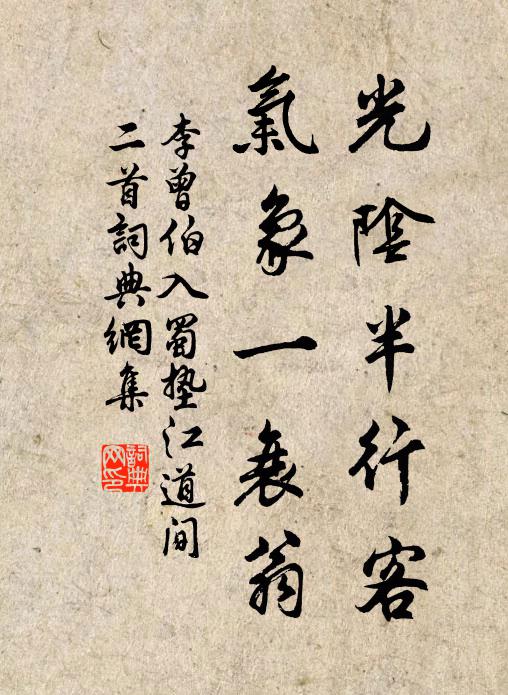 光陰半行客
氣象一衰翁
李曾伯入蜀墊江道間
二首詞典網集
詞典
网印